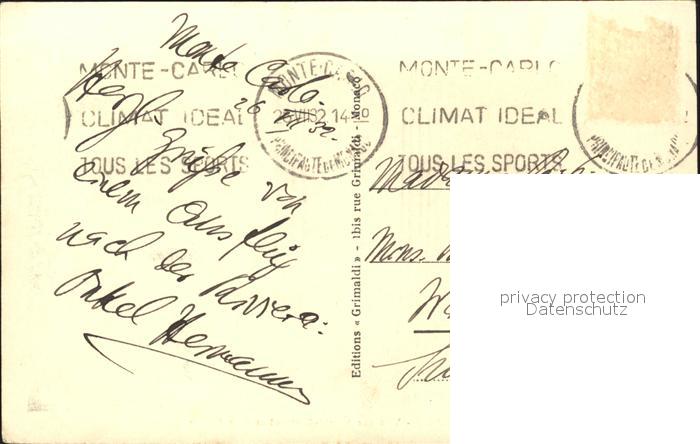 Monte Carlo.
26 VII 32.
Herzl. Grüße von
einem Ausflug
nach der Riviera:
Onkel Hermann
MONTE-CARLO
CLIMAT IDEAL
TOUS LES SPORTS
MONTE-CARLO
26 VII 32 14-10
PRINCIPAUTE DE MONACO
MONTE-CARLO
CLIMAT IDEAL
TOUS LES SPORTS
PRINCIPAUTE DE MONACO
Editions « Grimaldi » - 1bis rue Grimaldi - Monaco
Mons.
privacy protection
Datenschutz